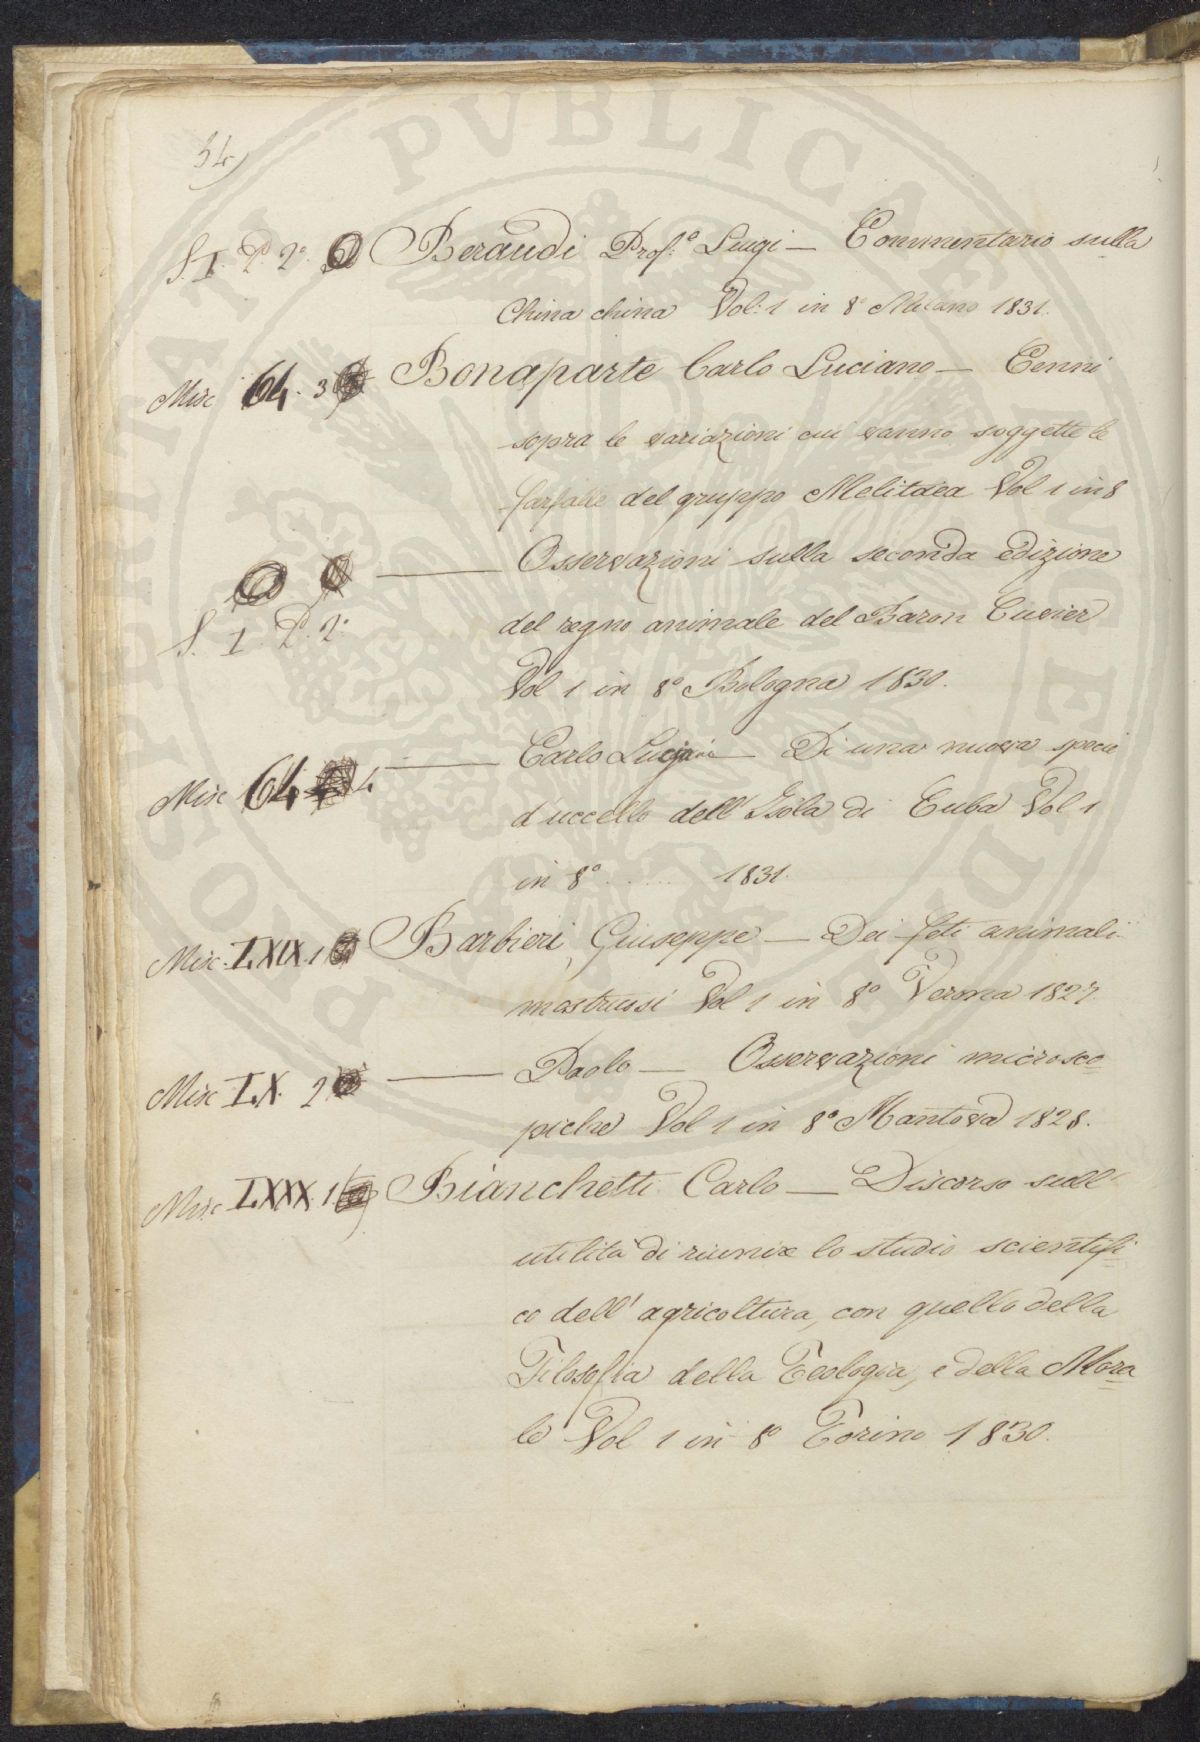 34)
S. I. P. 2.° Beraudi Prof.e Luigi — Commentario sulla
China china Vol: 1 in 8° Milano 1831.
Misc 64. 3 Bonaparte Carlo Luciano — Cenni
sopra le variazioni cui vanno soggette le
farfalle del gruppo Melitaea Vol 1 in 8
——— Osservazioni sulla seconda edizione
S. I. P. 2.° del regno animale del Baron Cuvier
Vol 1 in 8° Bologna 1830.
Misc 64 4 ——— Carlo Luciano — Di una nuova specie
d'uccello dell'Isola di Cuba Vol 1
in 8° ........ 1831.
Misc. LXIX. 1 Barbieri, Giuseppe — Dei feti animali
mostruosi Vol 1 in 8° Verona 1827.
Misc LX. 2 ——— Paolo — Osservazioni microsco=
piche Vol 1 in 8° Mantova 1828.
Misc LXXX. 1 Bianchetti Carlo — Discorso sull'
utilità di riunire lo studio scientifi=
co dell'agricoltura, con quello della
Filosofia della Teologia, e della Mora=
le Vol 1 in 8° Torino 1830.
PROSPERITATI PVBLICAE AVGENDAE